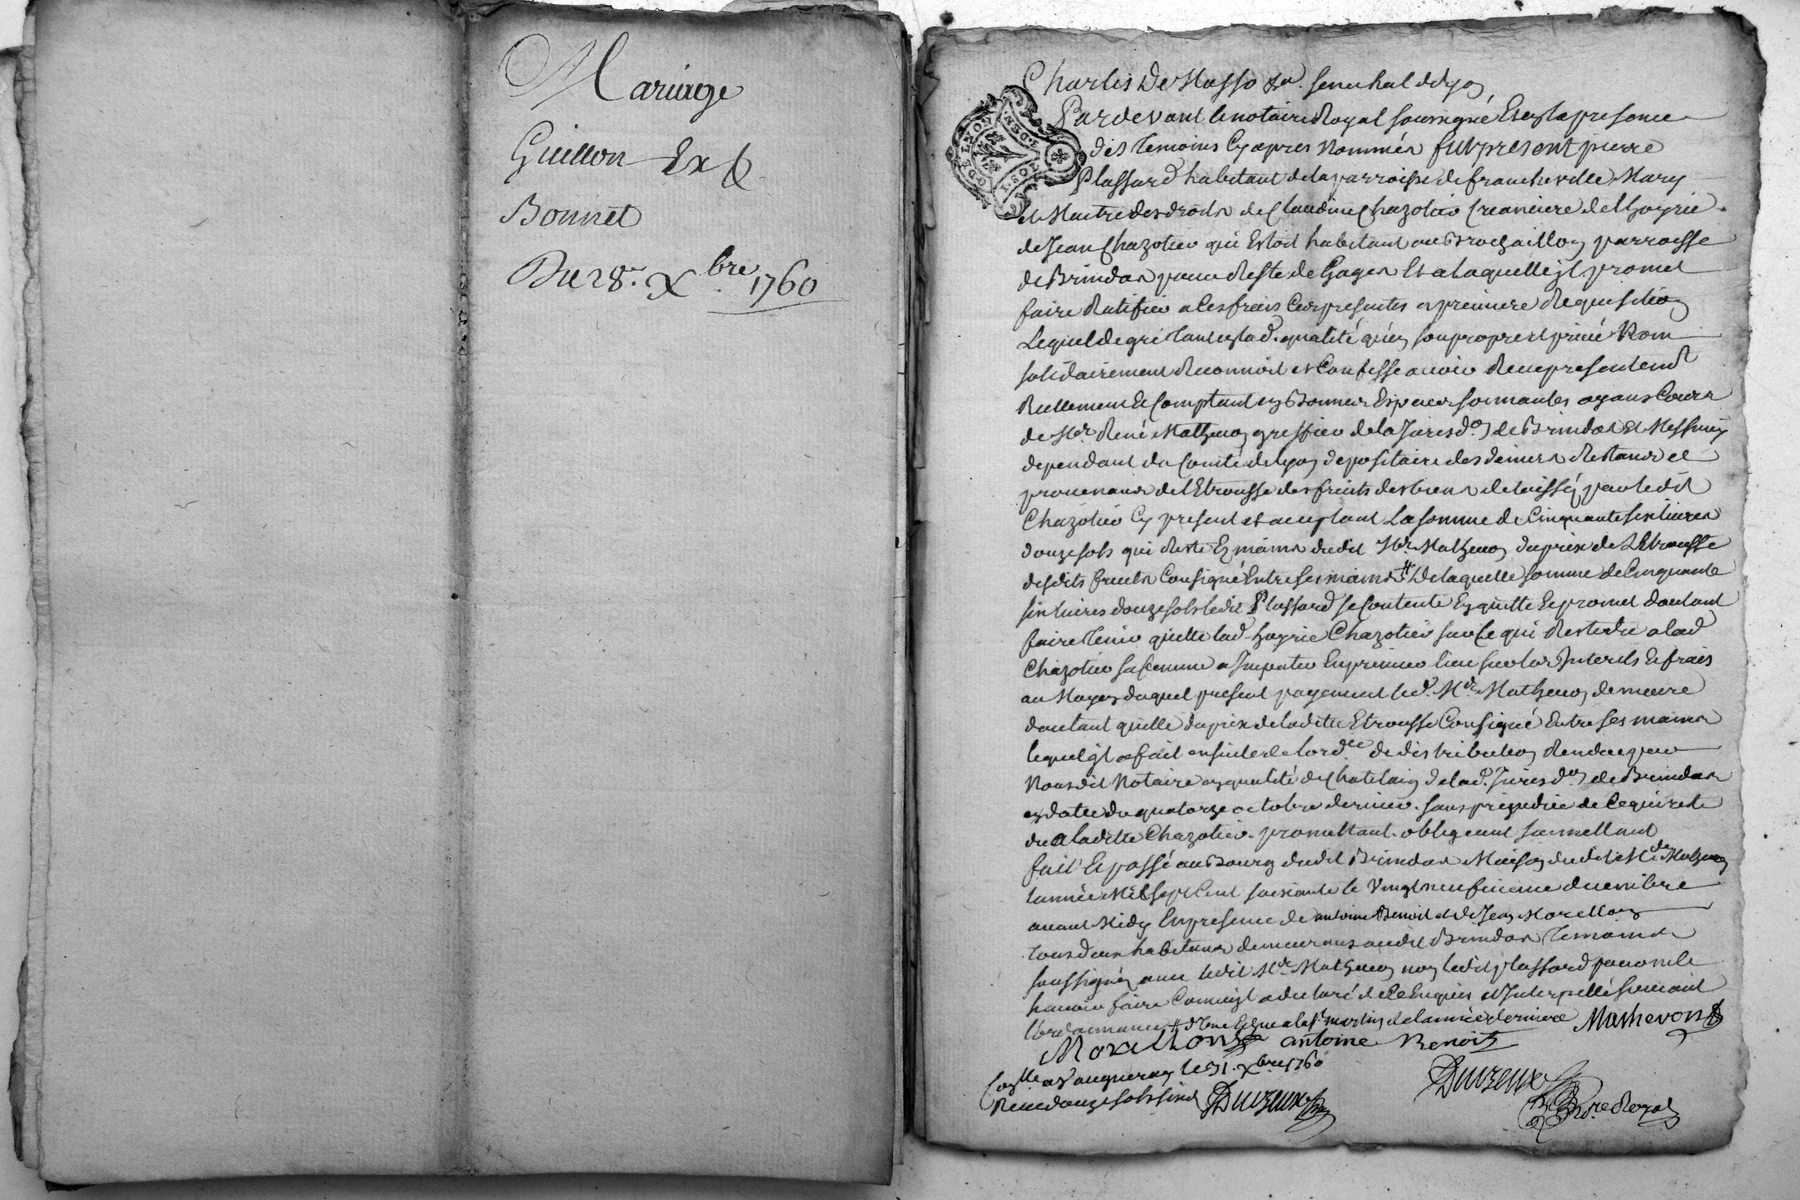 Mariage
Guillon Ex
Bonnet
Du 28. Xbre 1760
Charles De Masso Sr. senechal de Lyon
Pardevant le notaire Royal soussigné Et en la presence
des Temoins Cy apres Nommés fut present pierre
Plassard habitant de la parroisse de francheville Mary
et Maitre des droits de Claudine Chazotier Creanciere de L'hoyrie
de Jean Chazotier qui Estoit habitant au parroisse
de Brindas pour Reste de Gages Et a laquelle il promet
faire Ratifier a Ces frais Ces presentes a premiere Requisition
Lequel de gré tant en lad. qualité qu'en son propre et privé Nom
solidairement Reconnoit et Confesse avoir Receu presentement
Reellement Et Comptant en Bonnes Especes sonnantes ayans Cours
de Mr. René Mathevon greffier de la Jurisdon de Brindas Et Messimy
dependant du Comté de Lyon depositaire des deniers Restans et
provenans de l'Etrousse des fruits des biens delaissés par ledit
Chazotier Cy present et acceptant La somme de Cinquante six livres
douze sols qui Reste Es mains dudit Mr. Mathevon du prix de L'Etrousse
desdits fruits Consigné Entre ses mains # De laquelle somme de Cinquante
six livres douze sols ledit Plassard se Contente En quitte Et promet d'autant
faire Tenir quitte lad. hoyrie Chazotier sur Ce qui Reste du a lad.
Chazotier sa femme a Imputer En premier lieu sur les Interets Et frais
au Moyen duquel present payement led. Mr. Mathevon demeure
d'autant quitte du prix de ladite Etrousse Consigné Entre ses mains
lequel il a fait ensuite de l'ord.ce de distribution Rendue par
Nous dit Notaire en qualité de Chatelain de lad. Jurisdon de Brindas
en datte du quatorze octobre dernier. sans prejudice de Ce qui reste
du a ladite Chazotier. promettant. obligeant soumettant
fait Et passé au Bourg dudit Brindas Maison dudit Mr. Mathevon
l'année Mil sept Cent soixante le Vingt neufvieme decembre
avant Midy En presence de antoine Benoit et de Jean Morellon
tous deux habitans demeurans audit Brindas Temoins
soussignés avec ledit Mr. Mathevon non ledit plassard pour ne le
sçavoir faire Comme il a declaré de Ce Enquis et Interpellé suivant
l'ordonnance # d'une Echue a la St. martin de l'année derniere Mathevon
Morellon antoine Benoit
Conlle a Vaugneray le 31. Xbre 1760
Receu douze sols six d Duvzeux
Duvzeux
Nore Royal